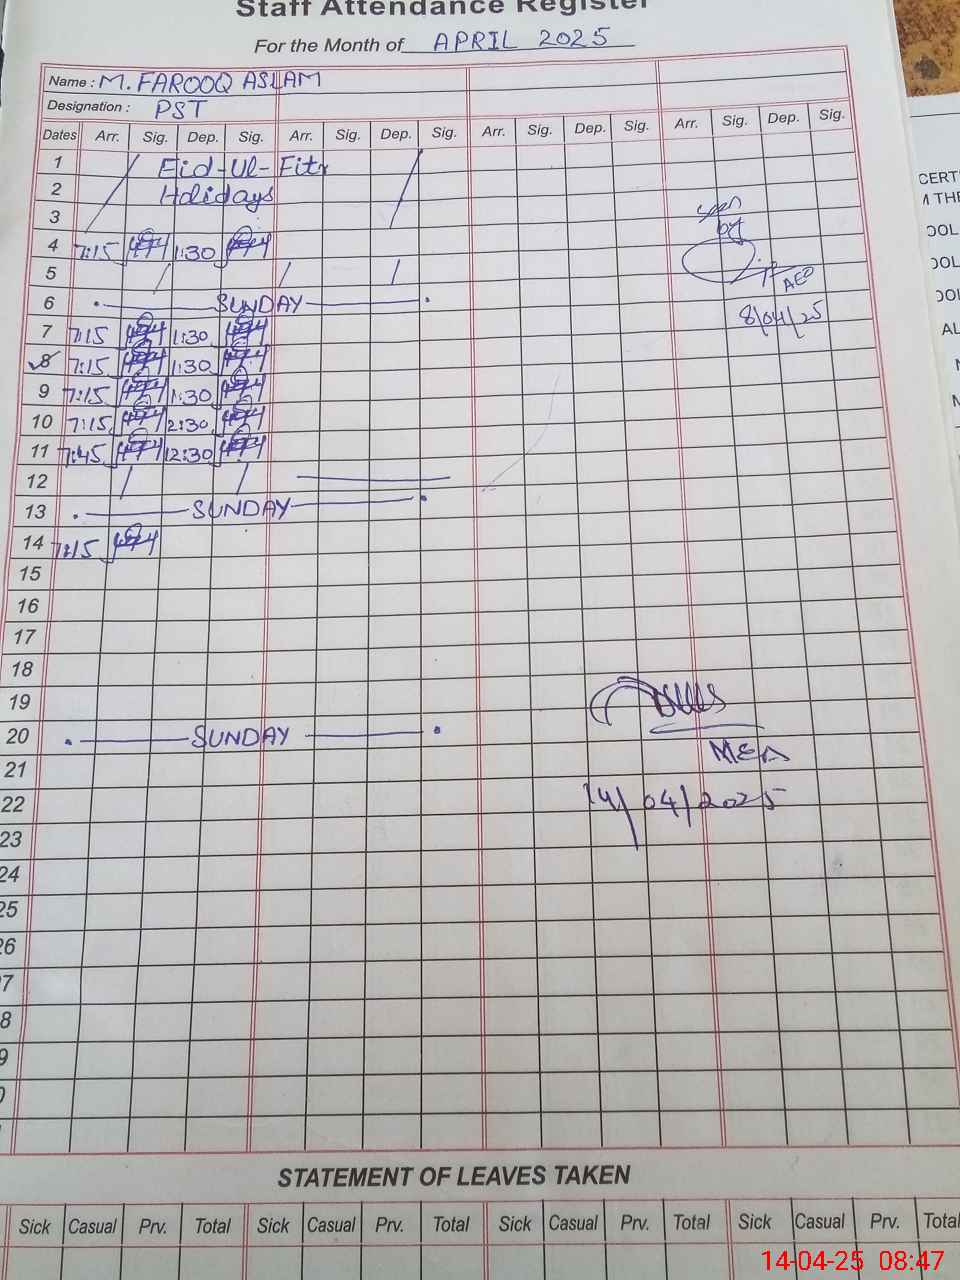 Staff Attendance Register
For the Month of APRIL 2025
Name : M. FAROOQ ASLAM
Designation : PST
Dates Arr. Sig. Dep. Sig. Arr. Sig. Dep. Sig. Arr. Sig. Dep. Sig. Arr. Sig. Dep. Sig.
1 Eid-Ul-Fitr
2 Holidays
3
4 7:15 1:30
5
6 SUNDAY
7 7:15 1:30
8 7:15 1:30
9 7:15 1:30
10 7:15 12:30
11 7:45 12:30
12
13 SUNDAY
14 7:15
15
16
17
18
19
20 SUNDAY
21
22
23
24
25
26
seen
by
AEO
8/04/25
MEA
14/04/2025
STATEMENT OF LEAVES TAKEN
Sick Casual Prv. Total Sick Casual Prv. Total Sick Casual Prv. Total Sick Casual Prv. Total
14-04-25 08:47